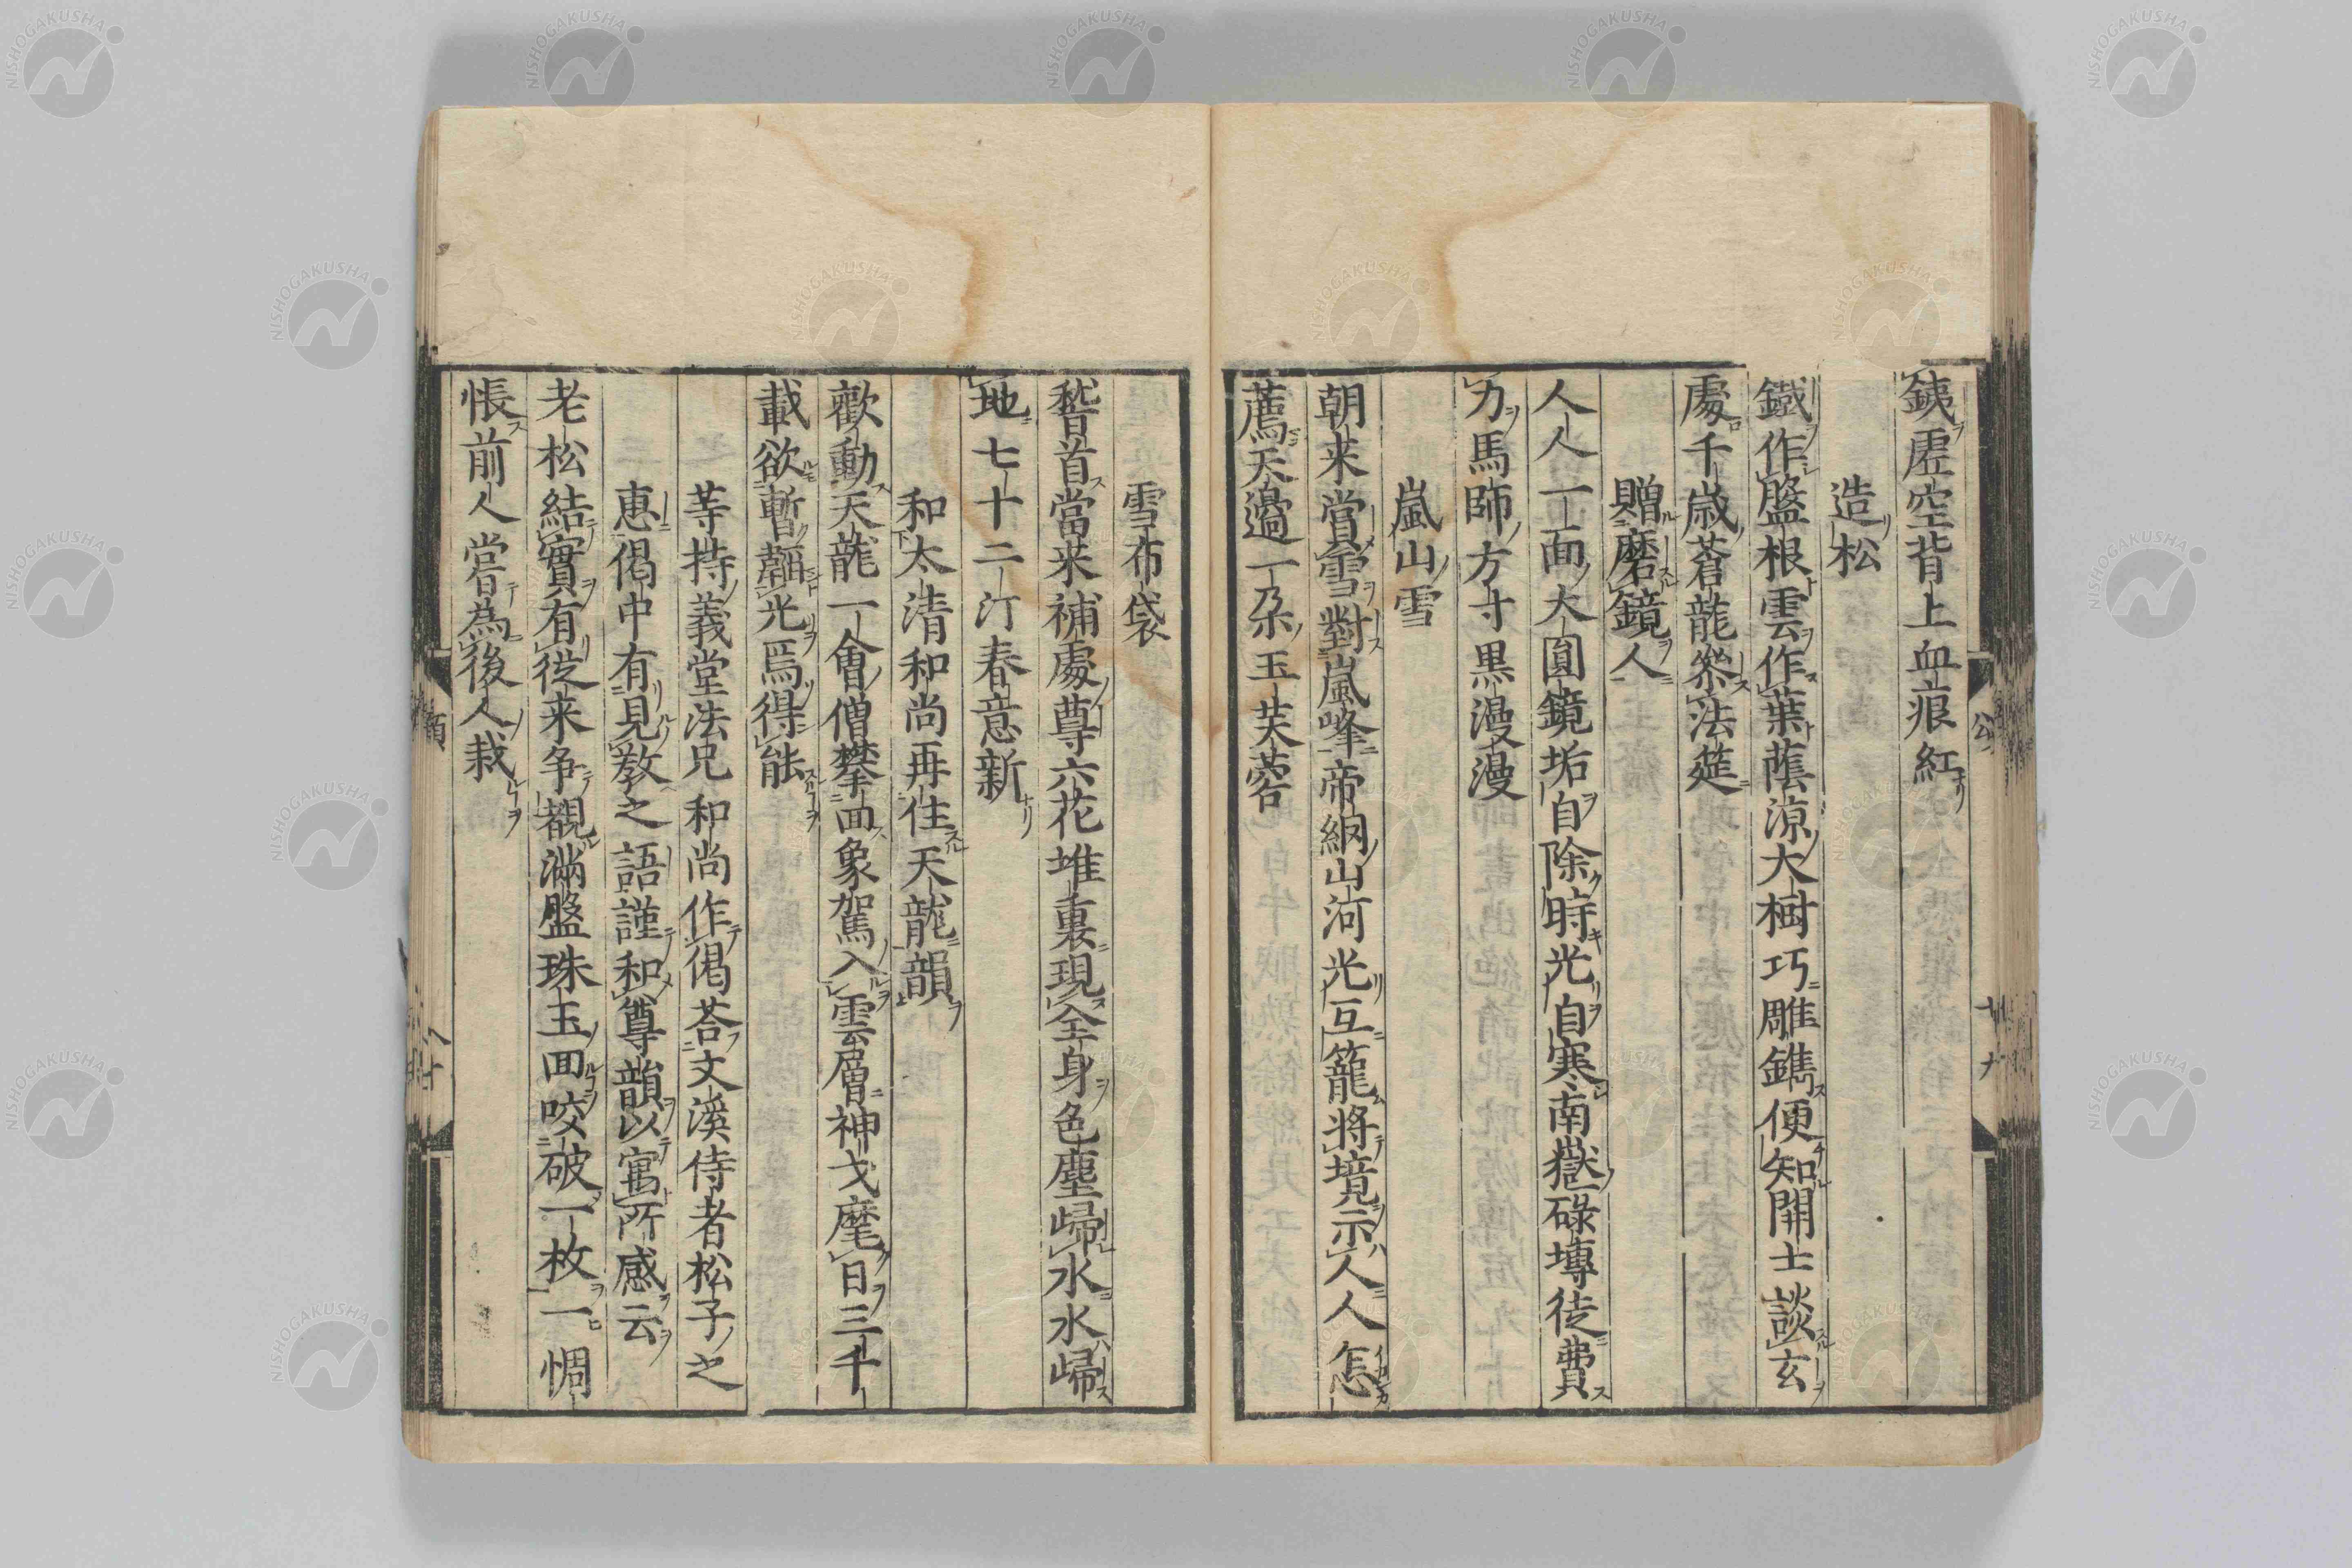 銕虚空背上血痕紅
造松
鐵作盤根雲作葉蔭涼大樹巧雕鐫便知開士談玄
處千歳蒼龍參法筵
贈磨鏡人
人人一面大圓鏡垢自除時光自寒南嶽碌塼徒費
力馬師方寸黒漫漫
嵐山雪
朝来賞雪對嵐峰帝網山河光互籠將境示人人怎
薦天邊一朶玉芙蓉
雪布袋
嵆首當来補處尊六花堆裏現全身色塵歸水水歸
地七十二汀春意新
和太清和尚再住天龍韻
歡動天龍一會僧攀回象駕入雲層神戈麾日三千
載欲暫韜光焉得能
等持義堂法兄和尚作偈荅文溪侍者松子之
惠偈中有見教之語謹和尊韻以寓所感云
老松結實有従来争覩滿盤珠玉回咬破一枚一惆
悵前人嘗為後人栽